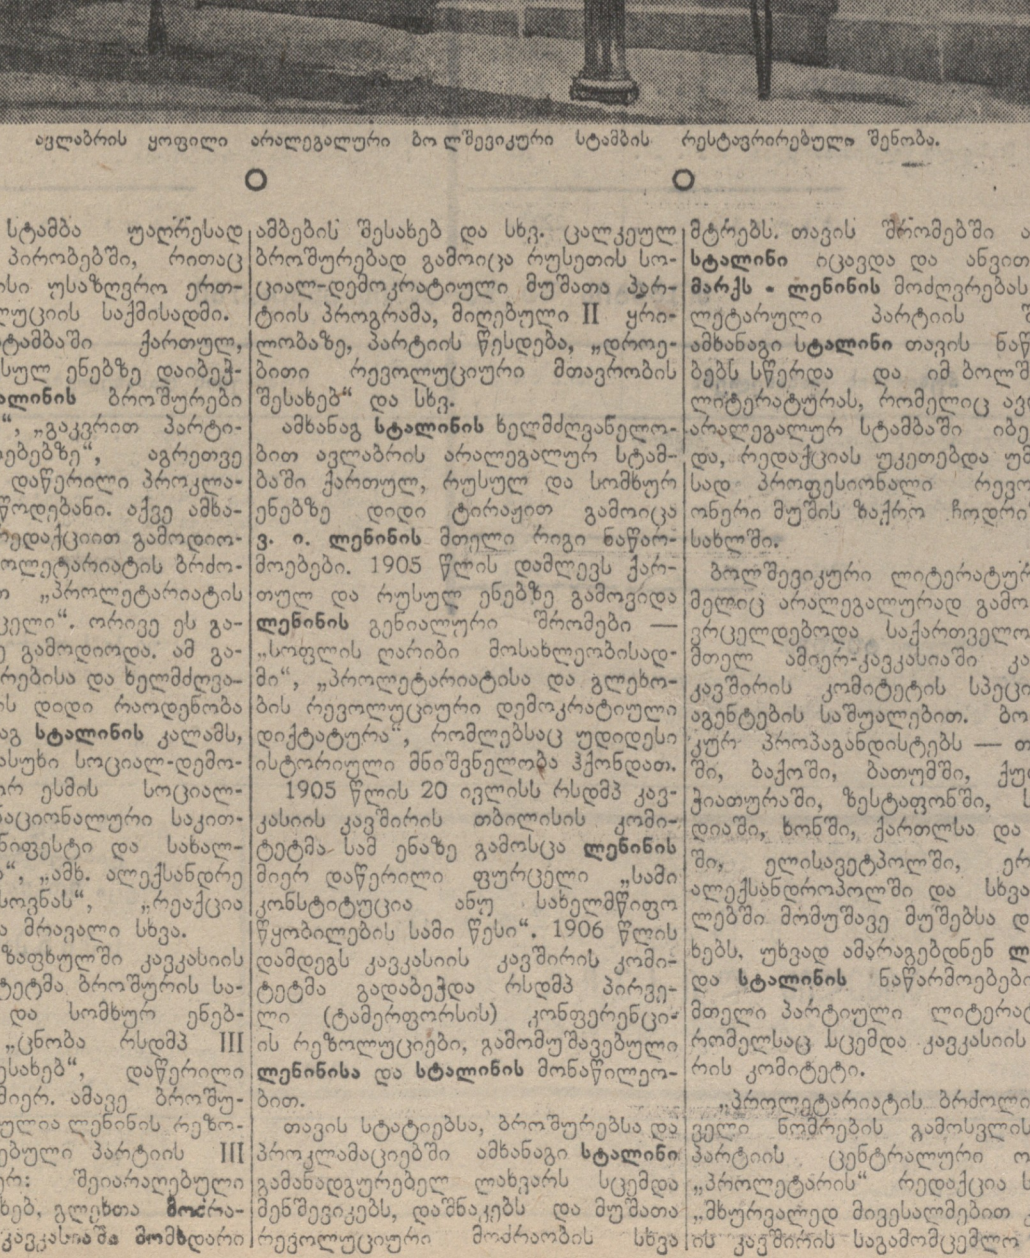 ავლაბრის ყოფილი არალეგალური ბოლშევიკური სტამბის რესტავრირებული შენობა.
სტამბა უაღრესად
პირობებში, რითაც
უსაზღვრო ერთ-
საქმისადმი.
ქართულ,
ენებზე დაიბეჭ-
ბროშურები
„გაკვრით პარტი-
აგრეთვე
დაწერილი პროკლა-
აქვე ამხა-
გამოდიო-
ბრძო-
„პროლეტარიატის
ორივე ეს გა-
გამოდიოდა. ამ გა-
და ხელმძღვა-
დიდი რაოდენობა
სტალინის კალამს,
სოციალ-დემო-
ესმის სოციალ-
საკით-
და სახალ-
„ამხ. ალექსანდრე
„რეაქცია
მრავალი სხვა.
კავკასიის
ბროშურის სა-
და სომხურ ენებ-
„ცნობა რსდმპ III
დაწერილი
ამავე ბროშუ-
ლენინის რეზო-
პარტიის III
შეიარაღებული
გლეხთა მოძრა-
მომხდარი
ამბების შესახებ და სხვ. ცალკეულ
ბროშურებად გამოიცა რუსეთის სო-
ციალ-დემოკრატიული მუშათა პარ-
ტიის პროგრამა, მიღებული II ყრი-
ლობაზე, პარტიის წესდება, „დროე-
ბითი რევოლუციური მთავრობის
შესახებ“ და სხვ.
ამხანაგ სტალინის ხელმძღვანელო-
ბით ავლაბრის არალეგალურ სტამ-
ბაში ქართულ, რუსულ და სომხურ
ენებზე დიდი ტირაჟით გამოიცა
ვ. ი. ლენინის მთელი რიგი ნაწარ-
მოებები. 1905 წლის დამლევს ქარ-
თულ და რუსულ ენებზე გამოვიდა
ლენინის გენიალური შრომები —
„სოფლის ღარიბი მოსახლეობისად-
მი“, „პროლეტარიატისა და გლეხო-
ბის რევოლუციური დემოკრატიული
დიქტატურა“, რომლებსაც უდიდესი
ისტორიული მნიშვნელობა ჰქონდათ.
1905 წლის 20 ივლისს რსდმპ კავ-
კასიის კავშირის თბილისის კომი-
ტეტმა სამ ენაზე გამოსცა ლენინის
მიერ დაწერილი ფურცელი „სამი
კონსტიტუცია ანუ სახელმწიფო
წყობილების სამი წესი“. 1906 წლის
დამდეგს კავკასიის კავშირის კომი-
ტეტმა გადაბეჭდა რსდმპ პირვე-
ლი (ტამერფორსის) კონფერენცი-
ის რეზოლუციები, გამომუშავებული
ლენინისა და სტალინის მონაწილეო-
ბით.
თავის სტატიებსა, ბროშურებსა და
პროკლამაციებში ამხანაგი სტალინი
გამანადგურებელ ლახვარს სცემდა
მენშევიკებს, დაშნაკებს და მუშათა
რევოლუციური მოძრაობის სხვა
მტრებს. თავის შრომებში
სტალინი იცავდა და
მარქს - ლენინის
პარტიის
ამხანაგი სტალინი თავის
ბებს სწერდა და იმ
ლიტერატურას, რომელიც
არალეგალურ სტამბაში
და, რედაქციას უკეთებდა
სად პროფესიონალი
ონერი მუშის ზაქრო
სახლში.
ბოლშევიკური
მელიც არალეგალურად
ვრცელდებოდა
მთელ ამიერ-კავკასიაში
კავშირის კომიტეტის
აგენტების საშუალებით.
კურ პროპაგანდისტებს —
ში, ბაქოში, ბათუმში,
ჭიათურაში, ზესტაფონში,
დიაში, ხონში, ქართლსა და
ში, ელისავეტპოლში,
ალექსანდროპოლში და
ლებში მომუშავე მუშებსა
ხებს, უხვად ამარაგებდნენ
და სტალინის
მთელი პარტიული
რომელსაც სცემდა კავკასიის
რის კომიტეტი.
„პროლეტარიატის
ველი ნომრების
პარტიის ცენტრალური
„პროლეტარის“ რედაქცია
„მხურვალედ მივესალმებით
ის კავშირის